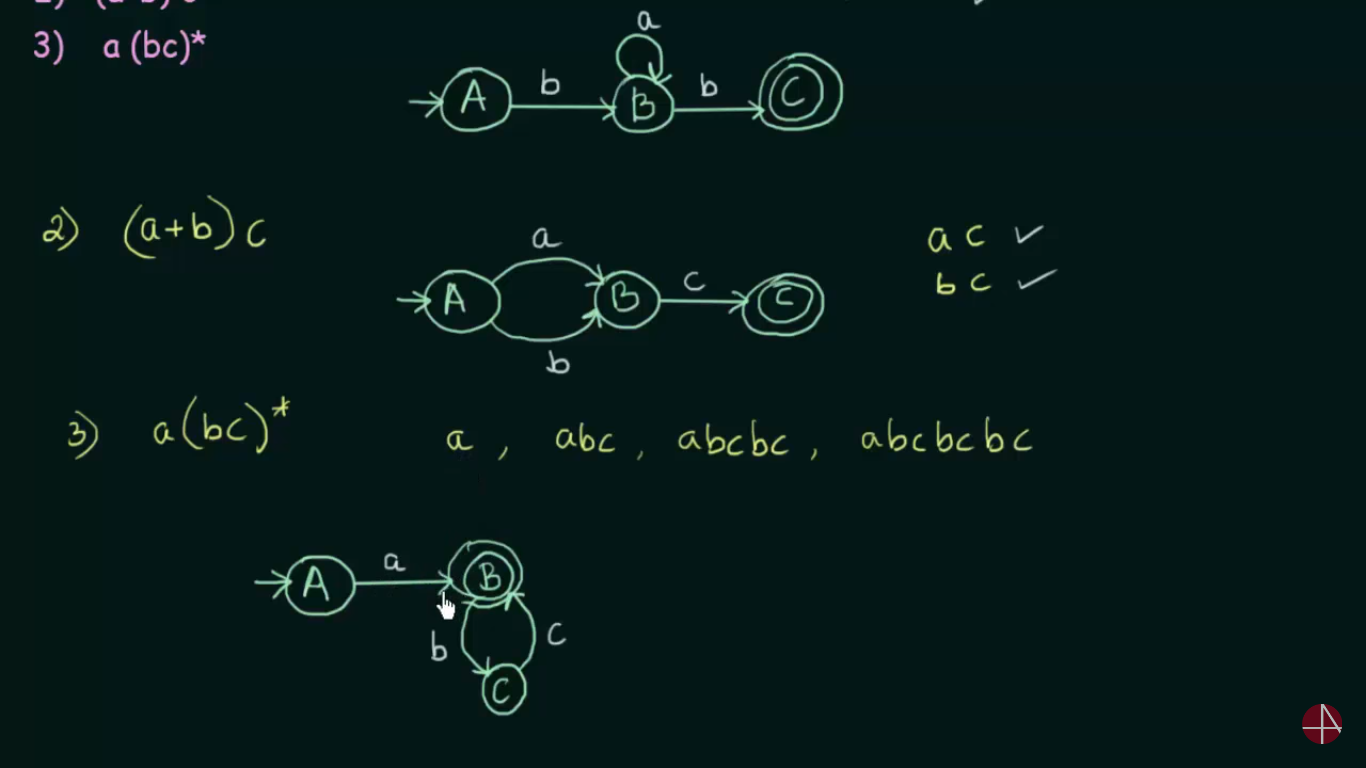 3) a (bc)*
a
A b B b C
2) (a+b) c
a
a c ✓
b c ✓
A B c C
b
3) a(bc)*
a , abc , abcbc , abcbcbc
A a B
b c
C